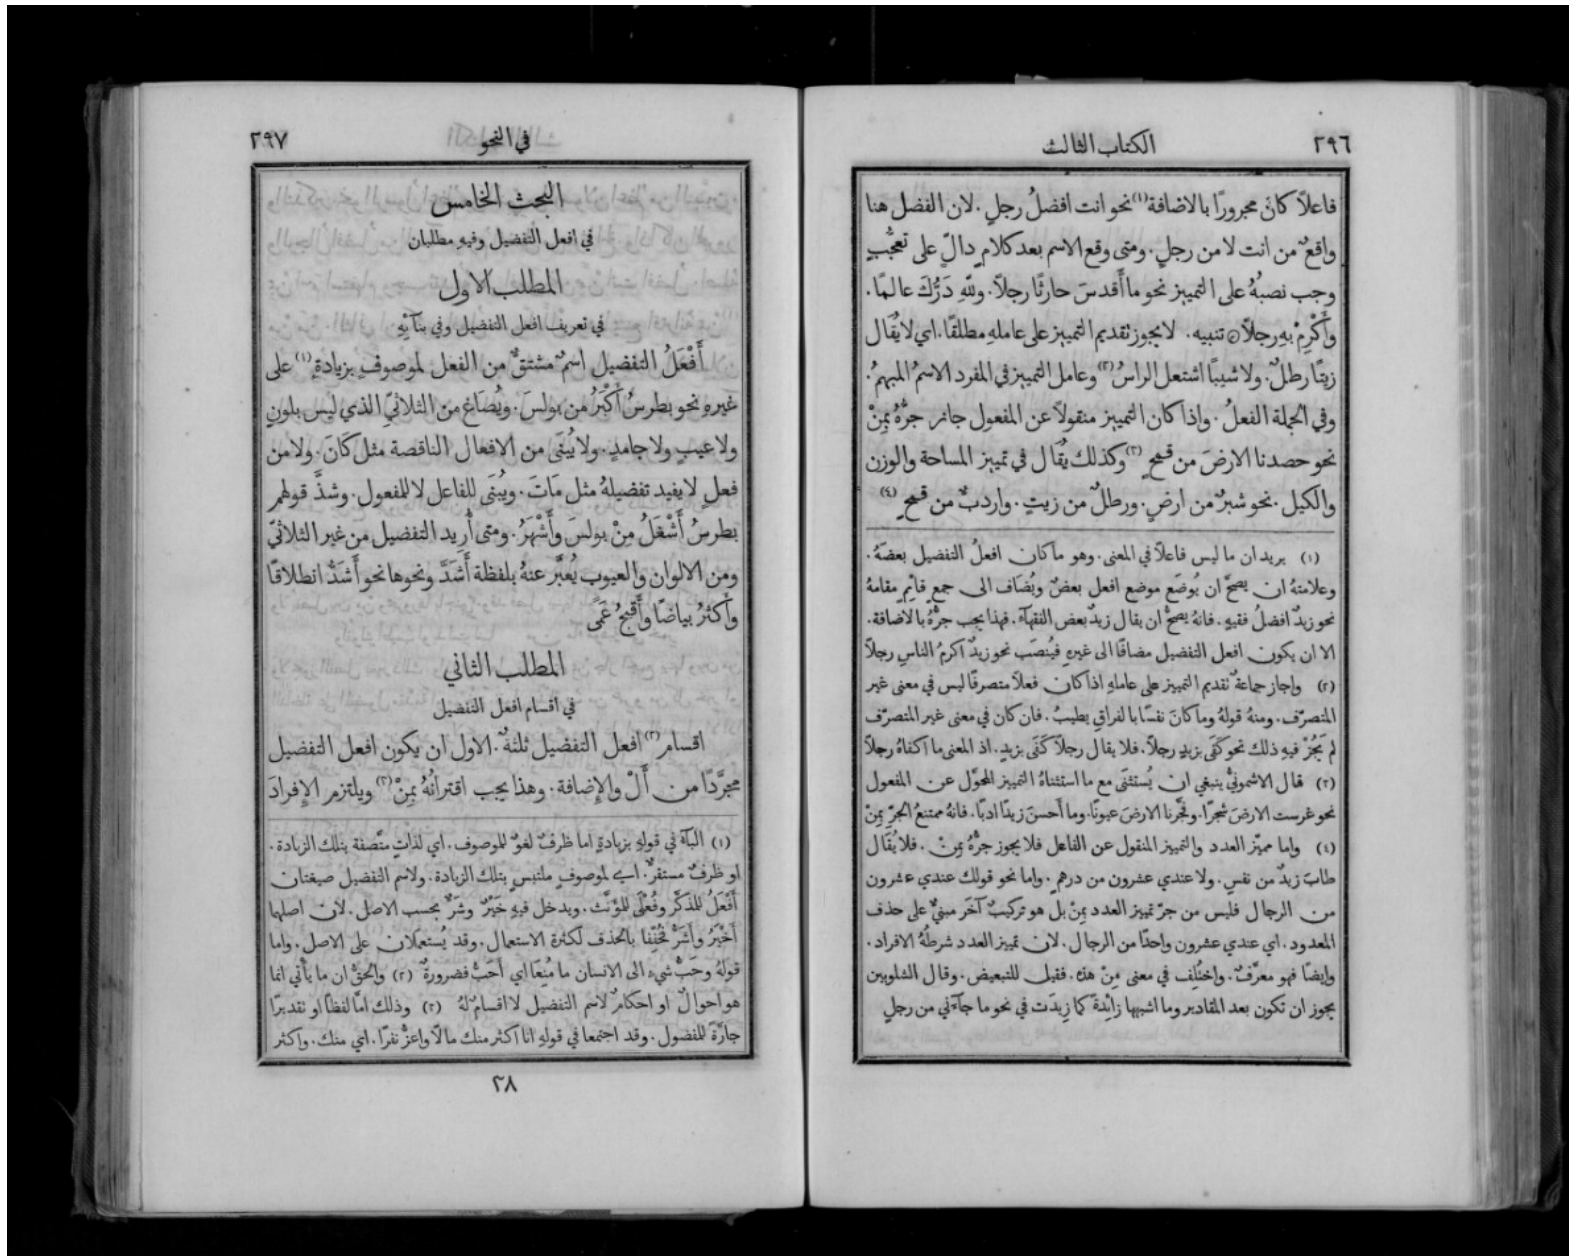 ٢٩٦
الكتاب الثالث
فاعلاً كانَ مجرورًا بالاضافة (١) نحو انت افضلُ رجلٍ. لان الفضل هنا
واقعٌ من انت لا من رجلٍ. ومتى وقع الاسم بعد كلامٍ دالٍّ على تعجُّبٍ
وجب نصبهُ على التمييز نحو ما أَقدسَ حارثًا رجلاً. ولِلّٰهِ دَرُّكَ عالمًا.
وأَكْرِمْ بهِ رجلاً ۞ تنبيه. لا يجوز تقديم التمييز على عاملهِ مطلقًا. اي لا يُقَال
زيتًا رطلٌ. ولا شيبًا اشتعل الراسُ (٢) وعامل التمييز في المفرد الاسمُ المبهمُ.
وفي الجملة الفعلُ. واذا كان التمييز منقولاً عن المفعول جاز جرُّهُ بِمِنْ
نحو حصدنا الارضَ من قمحٍ (٣) وكذلك يُقَال في تمييز المساحة والوزن
والكيل. نحو شبرٌ من ارضٍ. ورطلٌ من زيتٍ. واردبٌّ من قمحٍ (٤)
(١) يريد ان ما ليس فاعلاً في المعنى. وهو ما كان افعلُ التفضيل بعضَهُ.
وعلامتهُ ان يصحَّ ان يُوضَع موضع افعل بعضٌ ويُضَاف الى جمعٍ قائمٍ مقامهُ
نحو زيدٌ افضلُ فقيهٍ. فانهُ يصحُّ ان يقال زيدٌ بعض الفقهآء. فهذا يجب جرُّهُ بالاضافة.
الا ان يكون افعل التفضيل مضافًا الى غيرهِ فيُنصَب نحو زيدٌ اكرمُ الناسِ رجلاً
(٢) واجاز جماعةٌ تقديم التمييز على عاملهِ اذا كان فعلاً متصرفًا ليس في معنى غير
المتصرّف. ومنهُ قولهُ وما كانَ نفسًا بالفراقِ يطيبُ. فان كان في معنى غير المتصرّف
لم يَجُزْ فيهِ ذلك نحو كَفَى بزيدٍ رجلاً. فلا يقال رجلاً كَفَى بزيدٍ. اذ المعنى ما اكفاهُ رجلاً
(٣) قال الاشمونيُّ ينبغي ان يُستثنَى مع ما استثناهُ التمييز المحوَّل عن المفعول
نحو غرست الارضَ شجرًا. وفجَّرنا الارضَ عيونًا. وما أَحسنَ زيدًا ادبًا. فانهُ ممتنعُ الجرِّ بِمِنْ
(٤) واما مميّز العدد والتمييز المنقول عن الفاعل فلا يجوز جرُّهُ بِمِنْ. فلا يُقَال
طابَ زيدٌ من نفسٍ. ولا عندي عشرون من درهمٍ. واما نحو قولك عندي عشرون
من الرجال فليس من جرّ تمييز العدد بِمِنْ بل هو تركيبٌ آخَر مبنيٌّ على حذف
المعدود. اي عندي عشرون واحدًا من الرجال. لان تمييز العدد شرطُهُ الافراد.
وايضًا فهو معرَّفٌ. واختُلِف في معنى مِنْ هذه. فقيل للتبعيض. وقال الشلوبين
يجوز ان تكون بعد المقادير وما اشبهها زائِدةً كما زِيدَت في نحو ما جآءَني من رجلٍ
في النحو
٢٩٧
البحث الخامس
في افعل التفضيل وفيهِ مطلبان
المطلب الاول
في تعريف افعل التفضيل وفي بنآئِهِ
أَفْعَلُ التفضيل اسمٌ مشتقٌّ من الفعل لموصوفٍ بزيادةٍ (١) على
غيرهِ نحو بطرسُ أَكْبَرُ من بولسَ. ويُصَاغ من الثلاثيّ الذي ليس بلونٍ
ولا عيبٍ ولا جامدٍ. ولا يُبنَى من الافعال الناقصة مثل كَانَ. ولا من
فعلٍ لا يفيد تفضيلهُ مثل مَاتَ. ويُبنَى للفاعل لا للمفعول. وشذَّ قولهم
بطرسُ أَشْغَلُ مِنْ بولسَ وأَشْهَرُ. ومتى أُريد التفضيل من غير الثلاثيّ
ومن الالوان والعيوب يُعبَّر عنهُ بلفظة أَشَدَّ ونحوها نحو أَشَدُّ انطلاقًا
وأَكثرُ بياضًا وأَقبحُ عَمًى
المطلب الثاني
في اقسام افعل التفضيل
اقسام (٢) افعل التفضيل ثلثةٌ. الاول ان يكون افعل التفضيل
مجرَّدًا من أَلْ والإِضافة. وهذا يجب اقترانُهُ بِمِنْ (٣) ويلتزم الإِفرادَ
(١) البآءُ في قولهِ بزيادةٍ اما ظرفٌ لغوٌ للموصوف. اي لذاتٍ متَّصفة بتلك الزيادة.
او ظرفٌ مستقرٌّ. اي لموصوفٍ ملتبسٍ بتلك الزيادة. ولاسم التفضيل صيغتان
أَفْعَلُ للمذكَّر وفُعْلَى للمؤنَّث. ويدخل فيهِ خَيْرٌ وشَرٌّ بحسب الاصل. لان اصلها
أَخْيَرُ وأَشَرُّ خُفِّفا بالحذف لكثرة الاستعمال. وقد يُستعملان على الاصل. واما
قولهُ وحَبُّ شيءٍ الى الانسان ما مُنِعَا اي أَحَبُّ فضرورةٌ (٢) والحقُّ ان ما يأتي انما
هو احوالٌ او احكامٌ لاسم التفضيل لا اقسامٌ لهُ (٣) وذلك امَّا لفظًا او تقديرًا
جارَّةً للمفضول. وقد اجتمعا في قولهِ انا اكثر منك مالاً واعزُّ نفرًا. اي منك. واكثر
٣٨